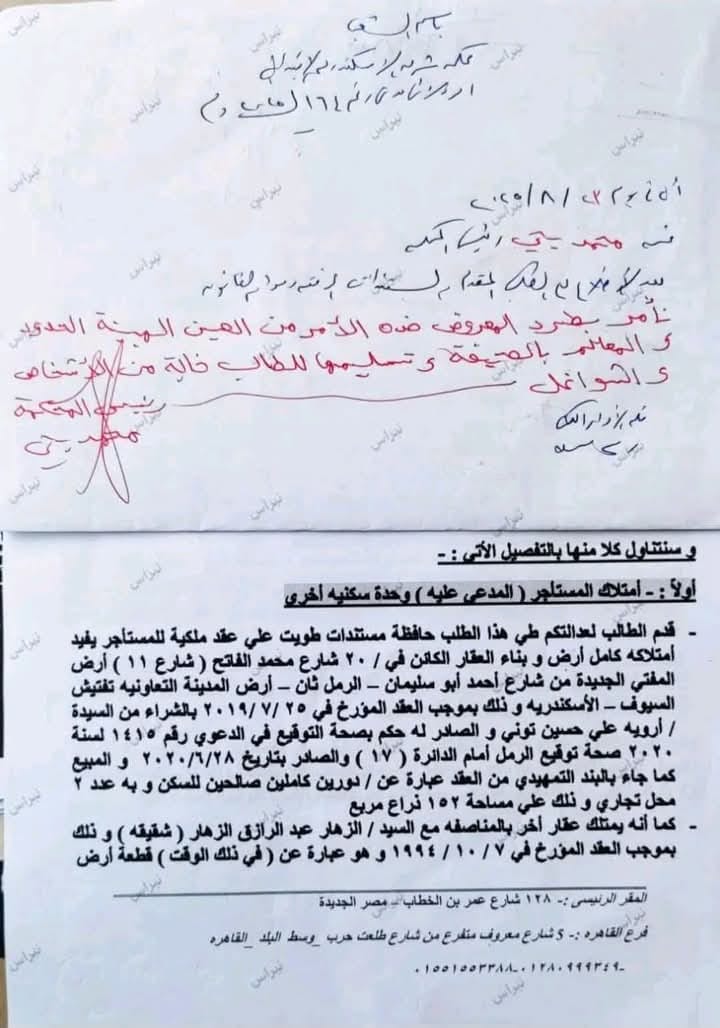 باسم الشعب
محكمة شرق الاسكندرية الابتدائية
امر الاداء رقم ١٦٤ لسنة
انه في يوم ٢٣ / ٨ / ٢٠٢٥
نحن محمد يحيى رئيس المحكمة
بعد الاطلاع على الطلب المقدم والمستندات المرفقة ومواد القانون
نأمر بطرد المعروض ضده الأمر من العين المبينة الحدود
و المعالم بالصحيفة و تسليمها للطالب خالية من الأشخاص
و الشواغل
رئيس المحكمة
محمد يحيى
و سنتناول كلا منها بالتفصيل الأتي : -
أولاً : - أمتلاك المستأجر ( المدعي عليه ) وحدة سكنيه أخرى
- قدم الطالب لعدالتكم طي هذا الطلب حافظة مستندات طويت علي عقد ملكية للمستأجر يفيد
أمتلاكه كامل أرض و بناء العقار الكائن في / ٢٠ شارع محمد الفاتح ( شارع ١١ ) أرض
المفتي الجديدة من شارع أحمد أبو سليمان – الرمل ثان – أرض المدينة التعاونيه تفتيش
السيوف – الأسكندريه و ذلك بموجب العقد المؤرخ في ٢٥ /٧ /٢٠١٩ بالشراء من السيدة
/ أرويه علي حسين توني و الصادر له حكم بصحة التوقيع في الدعوي رقم ١٤١٥ لسنة
٢٠٢٠ صحة توقيع الرمل أمام الدائرة ( ١٧ ) والصادر بتاريخ ٢٠٢٠/٦/٢٨ و المبيع
كما جاء بالبند التمهيدي من العقد عبارة عن / دورين كاملين صالحين للسكن و به عدد ٢
محل تجاري و ذلك علي مساحة ١٥٢ ذراع مربع
- كما أنه يمتلك عقار أخر بالمناصفه مع السيد / الزهار عبد الرازق الزهار ( شقيقه ) و ذلك
بموجب العقد المؤرخ في ٧ / ١٠ / ١٩٩٤ و هو عبارة عن ( في ذلك الوقت ) قطعة أرض
المقر الرئيسى :- ١٢٨ شارع عمر بن الخطاب – مصر الجديدة
فرع القاهره :- 5 شارع معروف متفرع من شارع طلعت حرب _وسط البلد _القاهره
٠١٥٥١٥٥٣٣٨٨-٠١٢٨٠٩٩٩٣٤٩-
نبراس